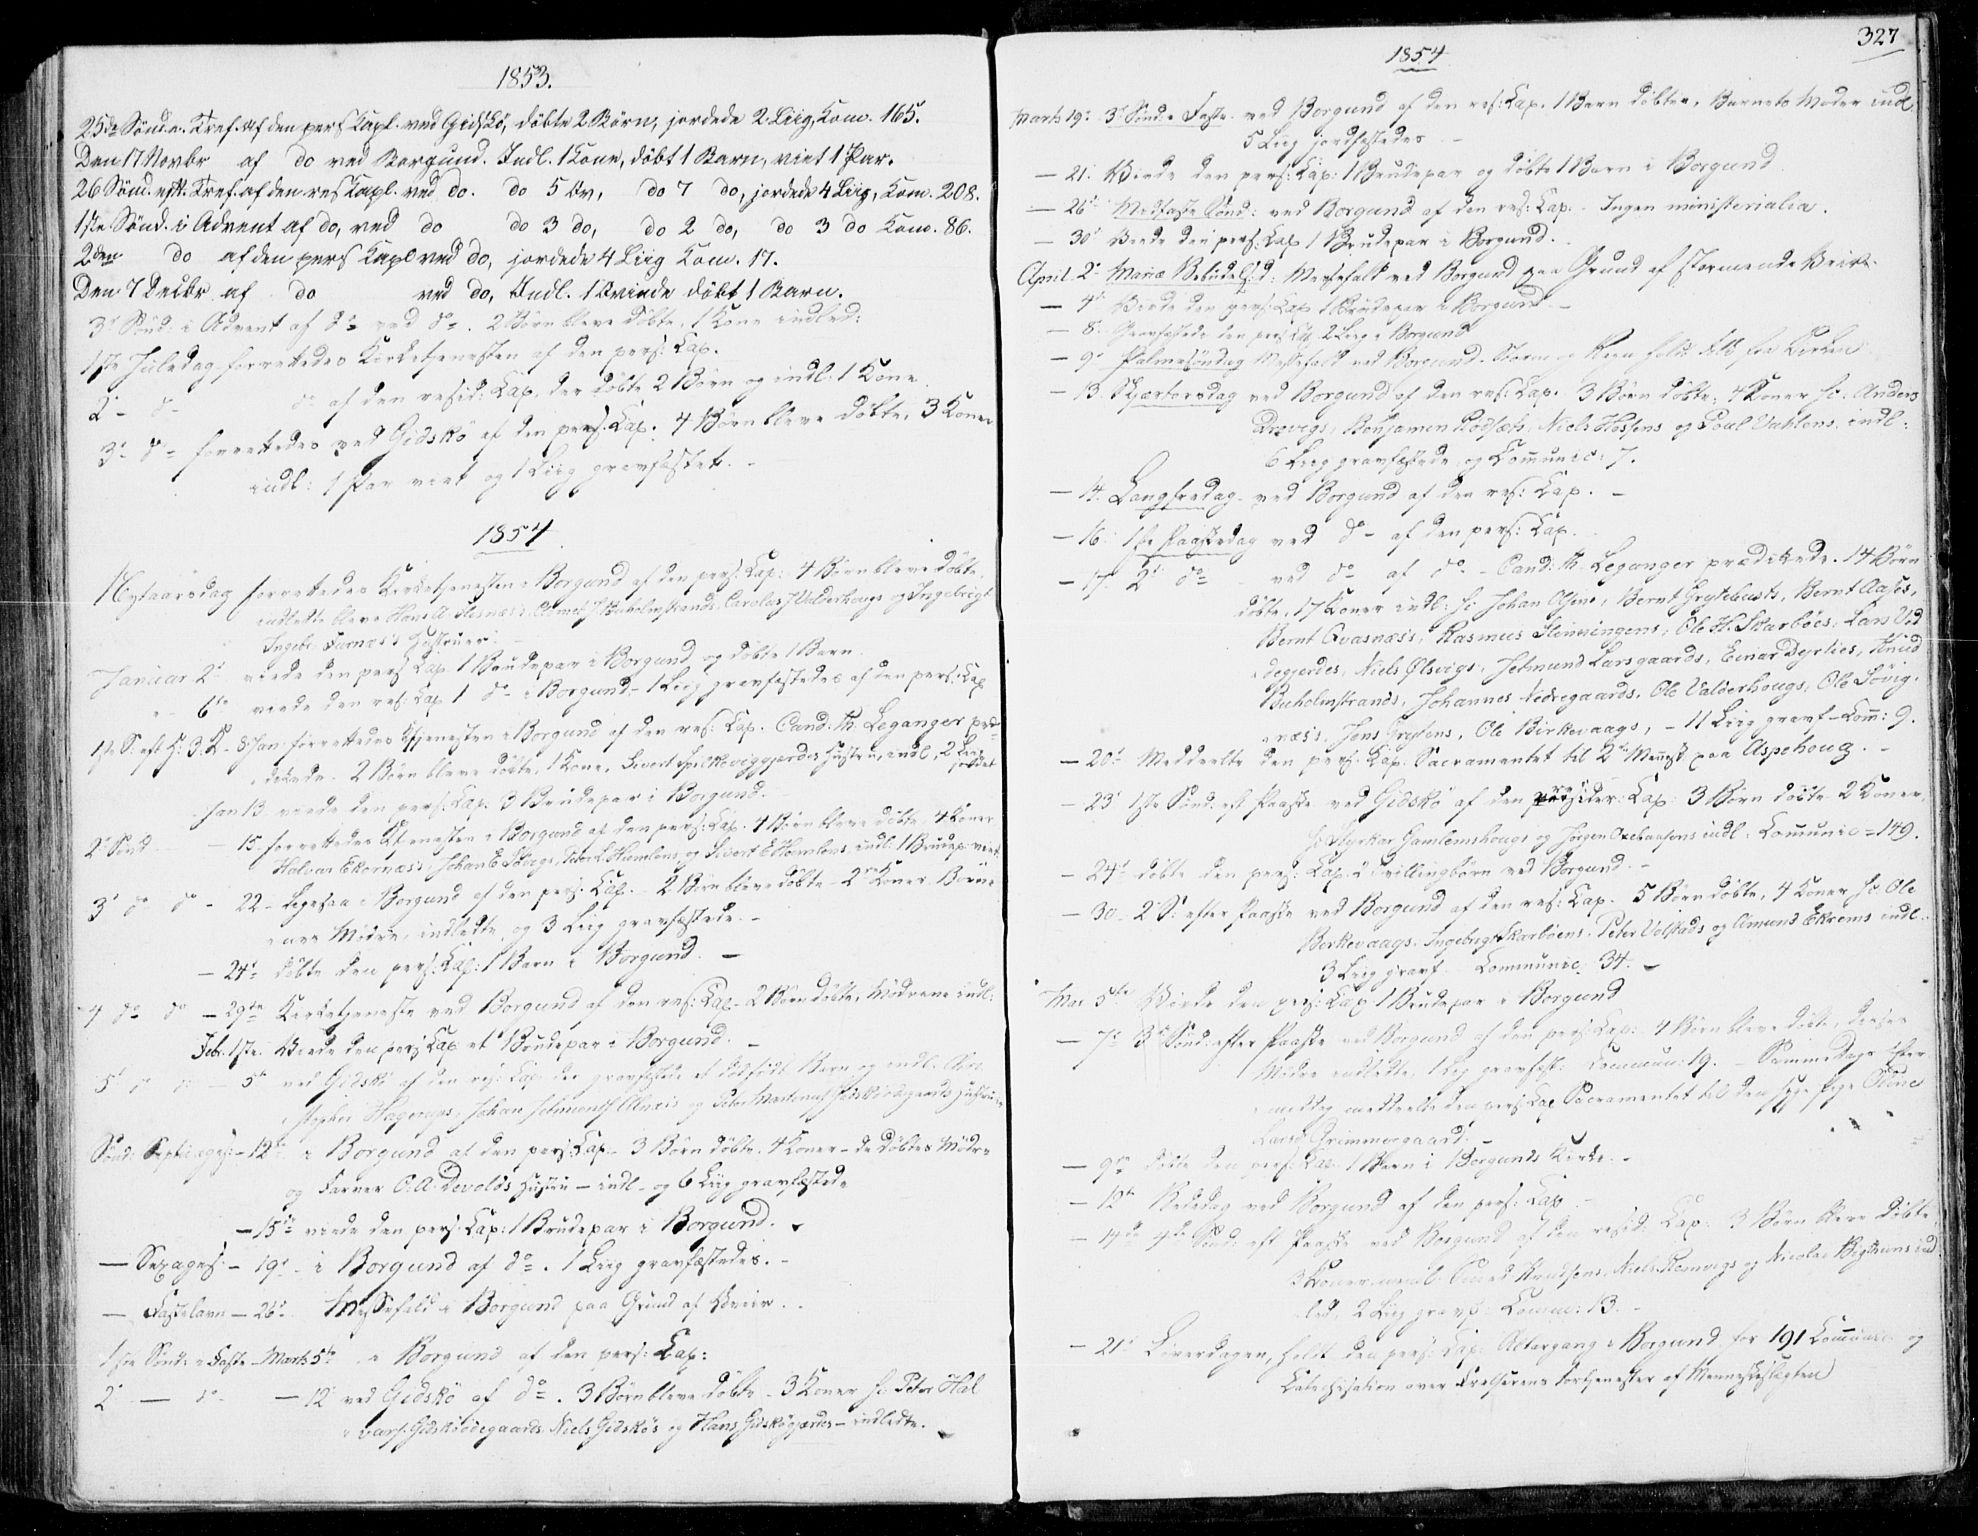 1853.
25de Sönd. e. Tref. af den pers Capl. ved Gidskö, döbte 2 Börn, jordede 2 Liig, Kom. 165.
Den 17 Novbr af do ved Borgund. Indl. 1 Kone, döbt 1 Barn, viet 1 Par.
26 Sönd. eft. Tref. af den res Capl. ved do. do 5 Kv, do 7 do, jordede 4 Liig, Kom. 208.
1ste Sönd. i Advent af do, ved do do 3 do, do 2 do, do 3 do Kom. 86.
2den do af den pers Kapl ved do, jordede 4 Liig Kom. 17.
Den 7 Decbr af do ved do, Indl. 1 Kvinde döbt 1 Barn.
3die Sönd: i Advent af do ved do. 2 Börn bleve döbte, 1 Kone indled:
1ste Juledag forrettedes Kirketjenesten af den pers: Cap.
2 - d - do af den resid: Cap, der döbte 2 Börn og indl. 1 Kone.
3 - do - forrettedes ved Gidskö af den pers. Cap. 4 Börn bleve döbte, 3 Koner
indl: 1 Par viet og 1 Liig gravfæstet. -
1854
Nytaarsdag forrettedes Kirketjenesten i Borgund af den pers: Cap: 4 Börn bleve döbte,
indledte bleve Hans A. Flesnæs's, Buholmstrands, Carolus J. Valderhougs og Ingebrigt
Ingebr. Furnæs's Hustruer. -
Januar 2 viede den pers Cap 1 Brudepar i Borgund og döbte 1 Barn
" - 6te viede den res: Cap 1 do i Borgund - 1 Liig gravfæstedes af den pers: Cap
1ste S. eft H. 3 K - 8 Jan: forrettedes Tjenesten i Borgund af den res: Cap. Cand: Th. Leganger præ-
dikede. 2 Börn bleve döbte, 1 Kone, Sivert Spilkeviggjerdes Hustru, indl, 2 Liig jordet
Jan 13 viede den pers: Cap. 3 Brudepar i Borgund.
2 Sönd - 15 forrettedes Ktjenesten i Borgund af den pers: Cap. 4 Börn bleve döbte, 4 Koner
Halvar Ekornæs's, Johan E. Humlens og Sivert E. Humlens indl. 1 Brudep. viet
3 do do - 22 - Ligesaa i Borgund af den pers: Cap. - 2 Börn bleve döbte - 2 Koner Börne-
nes Mödre, indledte, og 3 Liig gravfæstede. -
- 24 döbte den pers: Cap: 1 Barn i Borgund. -
4 do do - 29de Kirketjeneste ved Borgund af den res: Cap - 2 Börn döbte, Mödrene indl:
Febr. 1ste. Viede den pers Cap et Brudepar i Borgund. -
5 d d - 5te ved Gidskö af den res: Cap. der gravfæstede et dödfödt Barn og indl.
Johan Jetmunds Alnæs og Peter Martinus Hustruer
Sönd: Septuages: - 12te i Borgund af den pers: Cap - 3 Börn döbte, 4 Koner - de döbtes Mödre
og Farver O. A. Devolds Hustru - indl - og 6 Liig gravfæstede
- 15de viede den pers: Cap: 1 Brudepar i Borgund.
- Sexages: - 19 - i Borgund af do. 1 Liig gravfæstedes. -
- Fastelavn - 26 Messefald i Borgund paa Grund af Uveir. -
1ste Sönd: i Faste - Marts 5te i Borgund af den pers: Cap:
2 - d - 12 ved Gidskö af do. 3 Börn bleve döbte - 3 Koner sc. Peter Hal-
vars. Gidskööedegaards, Niels Gidskös og Hans Gidskögjerdes - indledte.
327
1854
Marts 19 3 Sönd. i Faste. ved Borgund af den res: Cap. 1 Barn döbtes, Barnets Moder indl.
5 Liig jordfæstedes. -
- 21. Viede den pers: Cap: 1 Brudepar og döbte 1 Barn i Borgund
- 26 Midfaste Sönd: ved Borgund af den res: Cap. - Ingen ministerialia.
- 30 Viede den pers: Cap 1 Brudepar i Borgund. -
April 2 Mariæ Bebudelsesd. Messefald ved Borgund paa Grund af stormende Veir.
- 4 Viede den pers: Cap. 1 Brudepar i Borgund. -
- 8 Gravfæstede den pers: Cap 2 Liig i Borgund
- 9 Palmesöndag Messefald ved Borgund. Storm og Regn holdt Folk fra Kirken
- 13 Skjærtorsdag ved Borgund af den res: Cap. 3 Börn döbte, 4 Koner sc. Anders
Benjamin Niels og Poul indl:
6 Liig gravfæstede, og Communic: 7.
- 14. Langfredag - ved Borgund af den res: Cap. -
- 16. 1ste Paaskedag ved do - af den pers: Cap.
- 17 2 do ved do af do. - Cand: Th. Leganger prædikede. 14 Börn
döbte, 17 Koner indl: sc. Johan Olsens, Bernt Grytebusts, Bernt Aases,
Bernt Qvasnæs's, Rasmus Slinningens, Ole H. Skarböes, Lars Ved-
degjerdes, Niels Ölsvigs, Jetmund Larsgaards, Einar Dyrlies, Knud
Buholmstrands, Johannes Nedregaards, Ole Valderhougs, Ole Sövig-
næs's, Jens Grytens, Ole Birkevaags, - 11 Liig gravf - Com: 9.
- 20 Meddeelte den pers: Cap. Sacramentet til 2 Mennesk paa Aspehoug. -
- 23 1ste Sönd: eft Paaske ved Gidskö af den resider: Cap 3 Börn döbte 2 Koner,
sc. Styrkar Gamlemshougs og Jörgen indl. Communic = 149.
- 24 döbte den pers: Cap 2 Tvillingbörn ved Borgund. -
- 30 - 2 S: efter Paaske ved Borgund af den res: Cap. 5 Börn döbte, 4 Koner sc. Ole
Birkevaags, Ingebrigt Skarböens, Peter Volstads og Amund Ekrems indl.
3 Liig gravf. Communic: 34. -
Mai 5te Viede den pers: Cap 1 Brudepar i Borgund
- 7 3de Sönd: efter Paaske ved Borgund af den pers: Cap: 4 Börn bleve döbte, disses
Mödre indledte, 1 Liig gravfæst: Commun: 19. - Samme Dags Efter-
middag meddeelte den pers: Cap Sacramentet til den syge Pige Oline
Larsd Grimmergaard. -
- 9de döbte den pers: Cap 1 Barn i Borgunds Kirke. -
- 12te Bededag ved Borgund af den pers: Cap -
- 14de 4de Sönd: eft Paaske ved Borgund af den resid: Cap: 3 Börn bleve döbte,
3 Koner Knudsens, Niels og Nicolai ind-
led. 2 Liig gravf: Commun: 13. -
- 21 Löverdagen, holdt den pers: Cap: Altergang i Borgund for 191 Communic: og
Catechisation over Frelserens Fortjenester af Menneskeslægten